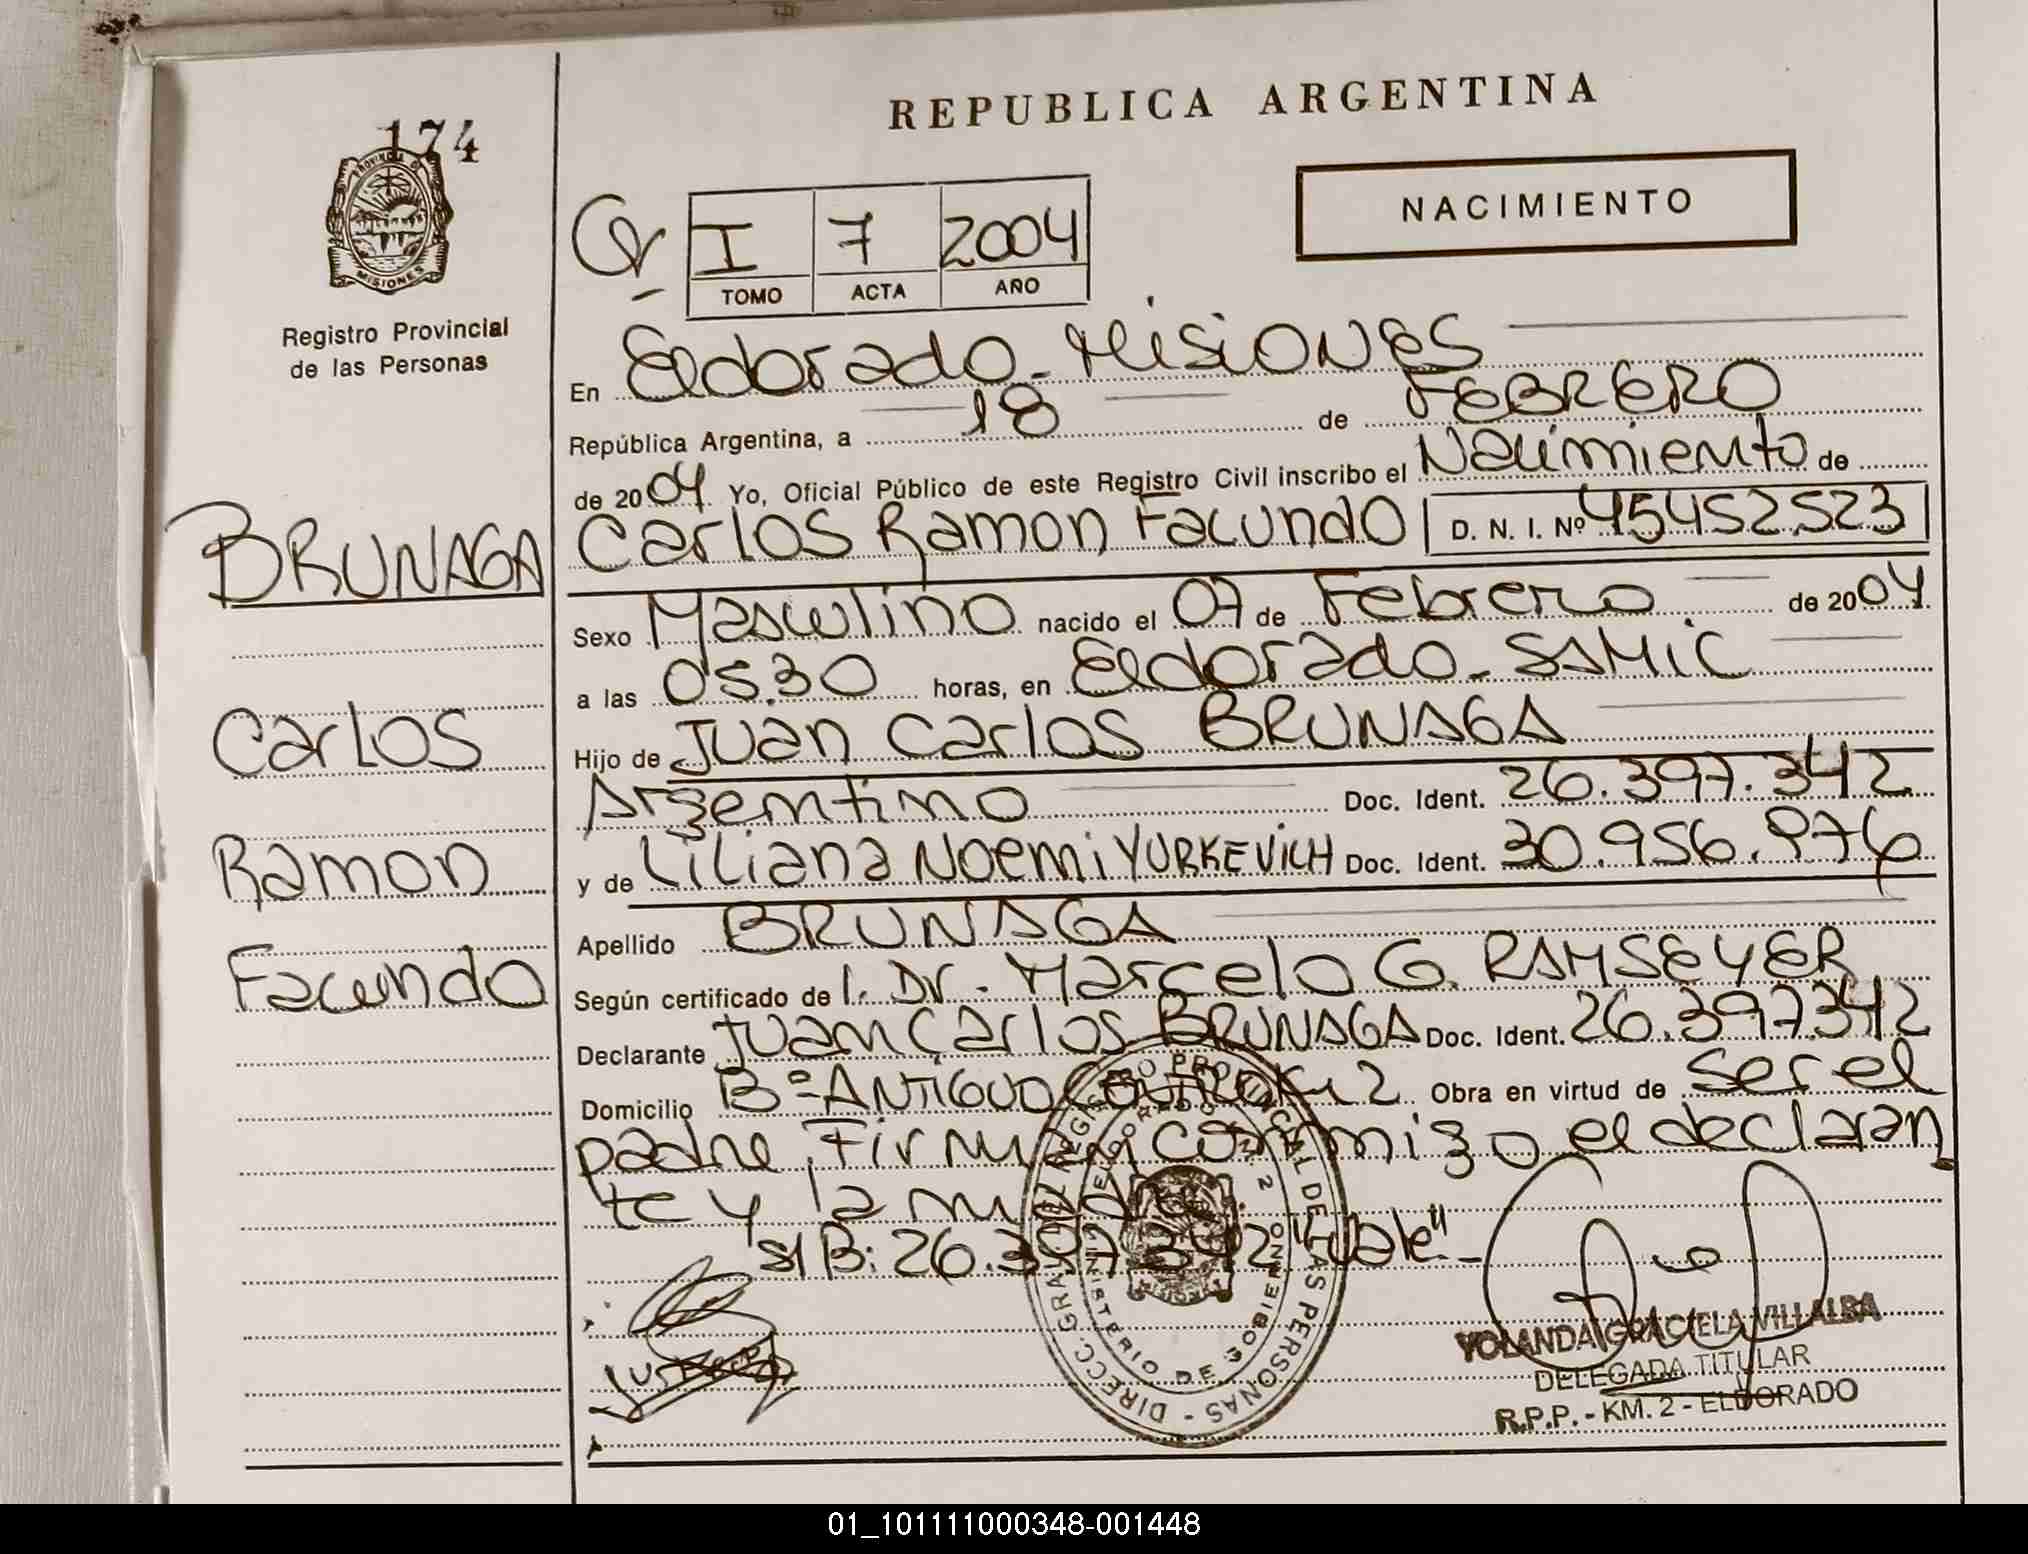 REPUBLICA ARGENTINA
174
PROVINCIA DE
MISIONES
Registro Provincial
de las Personas
NACIMIENTO
I 7 2004
TOMO ACTA AÑO
En Eldorado - Misiones
República Argentina, a 18 de FEBRERO
de 2004 Yo, Oficial Público de este Registro Civil inscribo el Nacimiento de
BRUNAGA
Carlos Ramon Facundo D. N. I. Nº 45452523
Sexo Masculino nacido el 07 de Febrero de 2004
a las 05.30 horas, en Eldorado - SAMIC
Carlos
Hijo de Juan Carlos BRUNAGA
Argentino Doc. Ident. 26.397.342
Ramon
y de Liliana Noemi YURKEVICH Doc. Ident. 30.956.976
Apellido BRUNAGA
Facundo
Según certificado de l. Dr. Marcelo G. RAMSEYER
Declarante Juan Carlos BRUNAGA Doc. Ident. 26.397.342
Domicilio Bº ANTIGUO Km 2 Obra en virtud de ser el
padre, Firman conmigo el declaran
te y la madre.
S/B: 26.397.342 "Vale" -
DIRECC. GRAL. DEL REGISTRO PROVINCIAL DE LAS PERSONAS -
MINISTERIO DE GOBIERNO
ELDORADO KM. 2
YOLANDA GRACIELA VILLALBA
DELEGADA TITULAR
R.P.P. - KM. 2 - ELDORADO
01_101111000348-001448